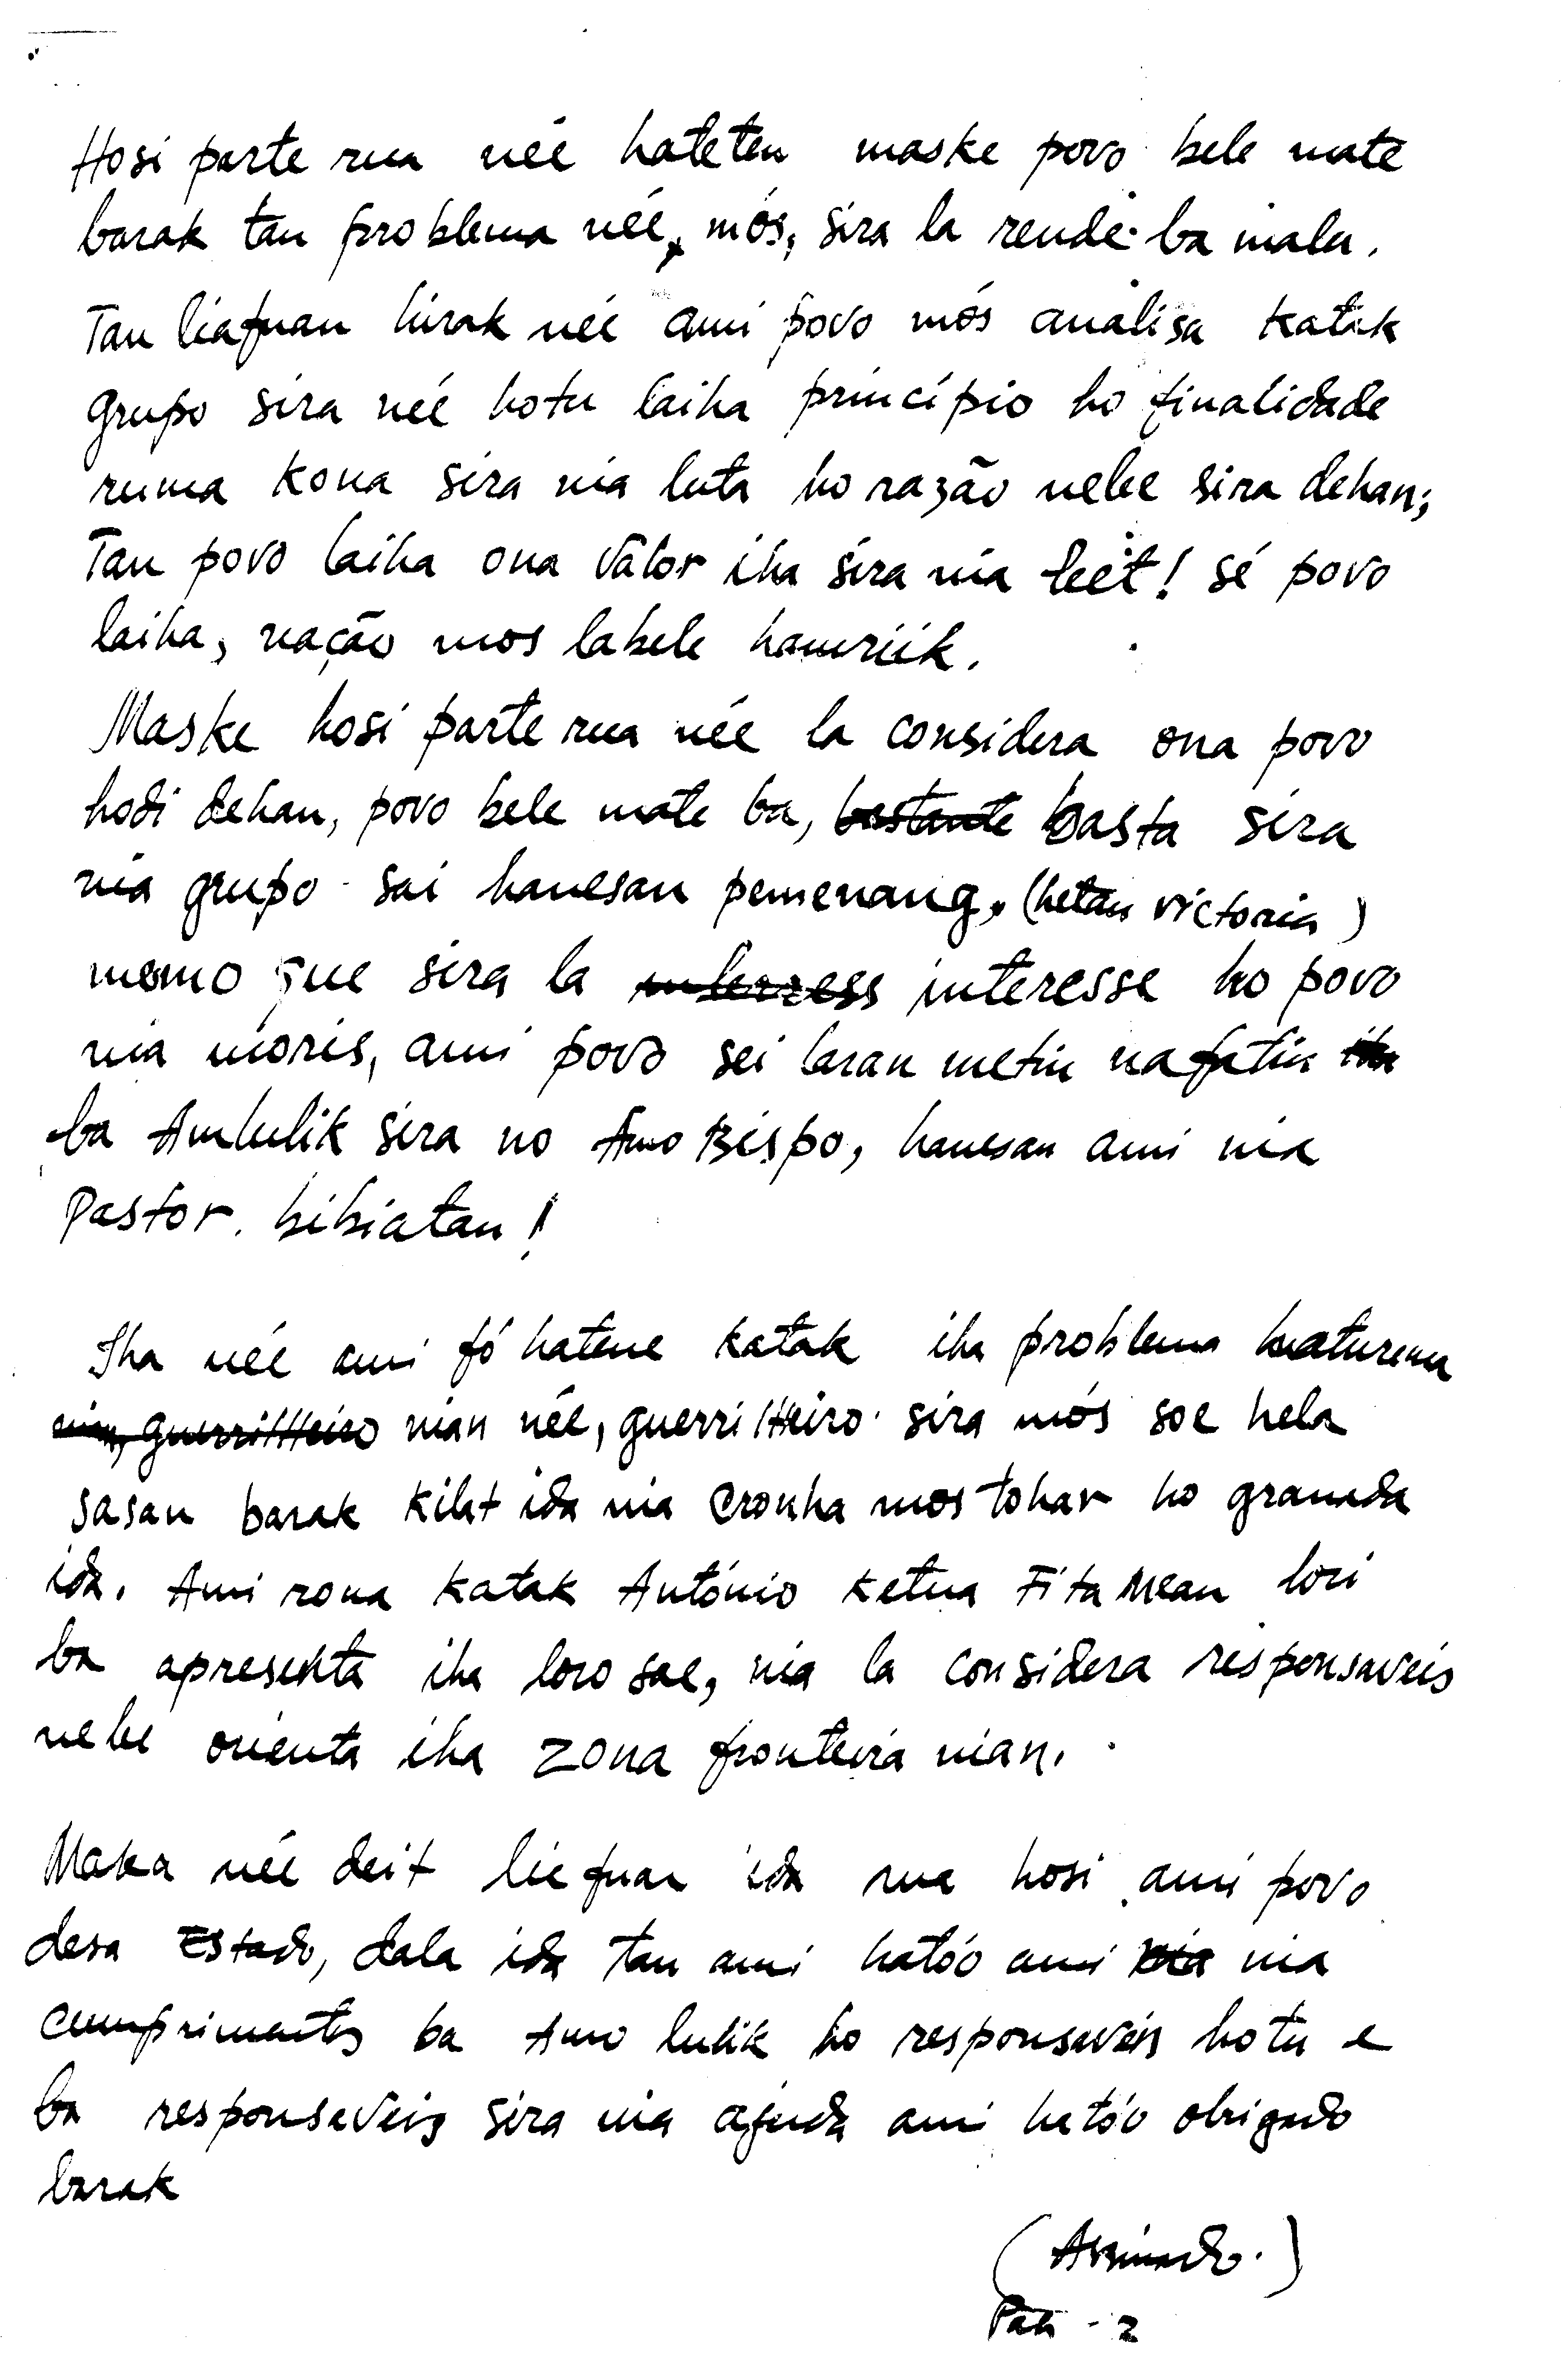 Hosi parte rua née hateten maske povo bele mate
barak tan problema née, mós, sira la rende ba malu.
Tan liafuan hirak née ami povo mós analisa katak
grupo sira née hotu laiha princípio ho finalidade
ruma kona sira nia luta ho razão nebe sira dehan;
Tan povo laiha ona valor iha sira nia leet! sé povo
laiha, nação mos labele hamriik.
Maske hosi parte rua née la considera ona povo
hodi dehan, povo bele mate ba, bastante basta sira
nia grupo sai hanesan pemenang, (hetan victoria)
mesmo que sira la interesse ho povo
nia moris, ami povo sei laran metin nafatin
ba Amlulik sira no Amo Bispo, hanesan ami nia
Pastor. bibiatan!
Iha née ami fó hatene katak iha problema Maturema
nian, guerrilheiro nian née, guerrilheiro sira mós soe hela
sasan barak kilat ida nia cronha mos tohar ho granada
ida. Ami rona katak António ketua Fita Mean lori
ba apresenta iha loro sae, nia la considera responsaveis
nebe orienta iha zona fronteira nian.
Maka née deit liefuan ida rua hosi ami povo
desa Estado, dala ida tan ami hatóo ami nia nia
cumprimentos ba Amo lulik ho responsaveis hotu e
ba responsaveis sira nia ajuda ami hatóo obrigado
barak
(Assinado.)